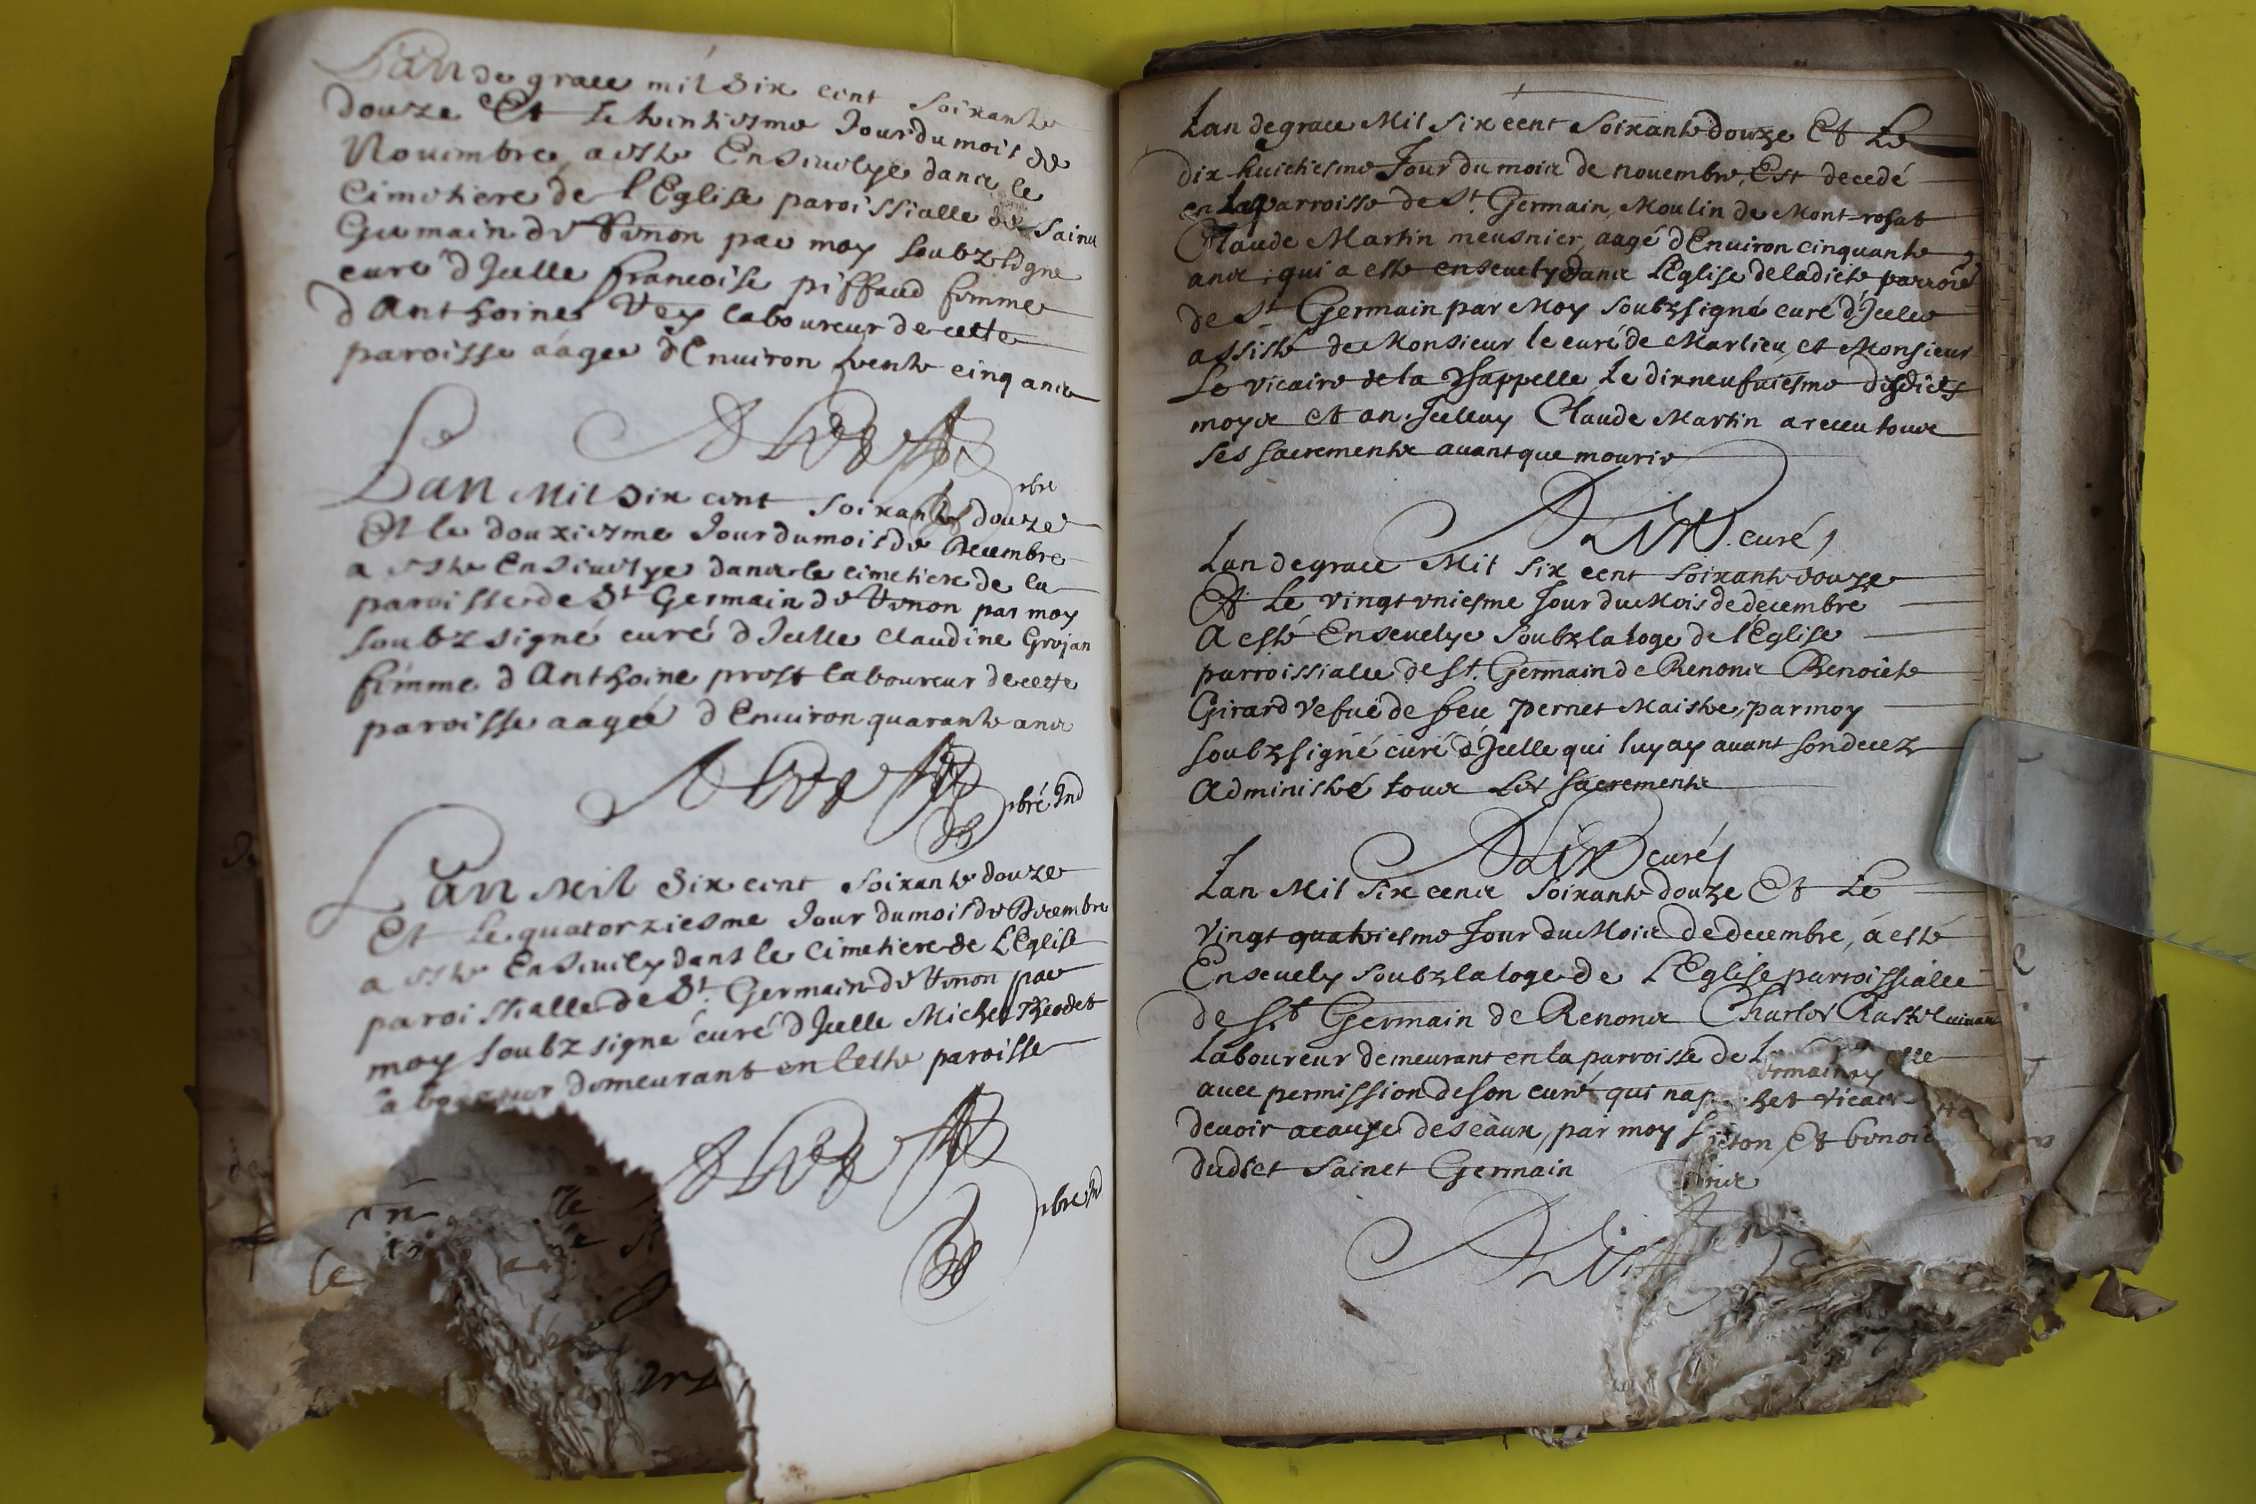 Lan de grace mil Six cent soixante
douze Et le huictiesme Jour du mois de
Nouembre a esté Enseuelye dans le
Cimetiere de l'Eglise paroissialle de Sainct
Germain de Renon par moy soubzsigné
curé d'Icelle francoise piffaud femme
d'Anthoine Vey laboureur de cette
paroisse aagee d'Enuiron trente cinq ans
Lan Mil Six cent soixante douze
Et le douxiesme Jour du mois de Decembre
a esté Enseuelye dans le cimetiere de la
paroisse de St Germain de Renon par moy
soubzsigné curé d'Icelle Claudine Grojan
femme d'Anthoine prost laboureur de cette
paroisse aagée d'Enuiron quarante ans
Lan Mil Six cent soixante douze
Et Le quatorziesme Jour du mois de Decembre
a esté Enseuely dans le Cimetiere de L'Eglise
paroissialle de St Germain de Renon par
moy soubzsigné curé d'Icelle Michel Theodet
laboureur demeurant en cette paroisse
Lan de grace Mil six cent soixante douze Et Le
dix huictiesme Jour du mois de nouembre, Est decedé
en la parroisse de St. Germain, Moulin de Mont-rosat
Claude Martin meusnier, aagé d'Enuiron cinquante
ans; qui a esté enseuely dans L'Eglise de ladicte parroisse
de St Germain par Moy soubzsigné curé d'Icelle
assisté de Monsieur le curé de Marlieu, et Monsieur
Le vicaire de la Chappelle Le dixneufuiesme desdicts
moys et an, Icelluy Claude Martin a receu tous
ses sacrements auant que mourir
curé
Lan de grace Mil six cent soixante douze
Et Le vingt vniesme Jour du Mois de decembre
A esté Enseuelye soubz la loge de l'Eglise
parroissialle de St. Germain de Renons Benoîcte
Girard vefue de feu pernet Maistre, par moy
soubzsigné curé d'Icelle qui luy ay auant son decez
Administré tous Les sacrements
curé
Lan Mil six cens soixante douze Et Le
vingt quatriesme Jour du Mois de decembre, á esté
Enseuely soubz la loge de L'Eglise parroissialle
de St Germain de Renons Charles Rastel viuant
Laboureur demeurant en la parroisse de
auec permission de son curé qui
deuoir a cause des eaux, par moy
dudict sainct Germain